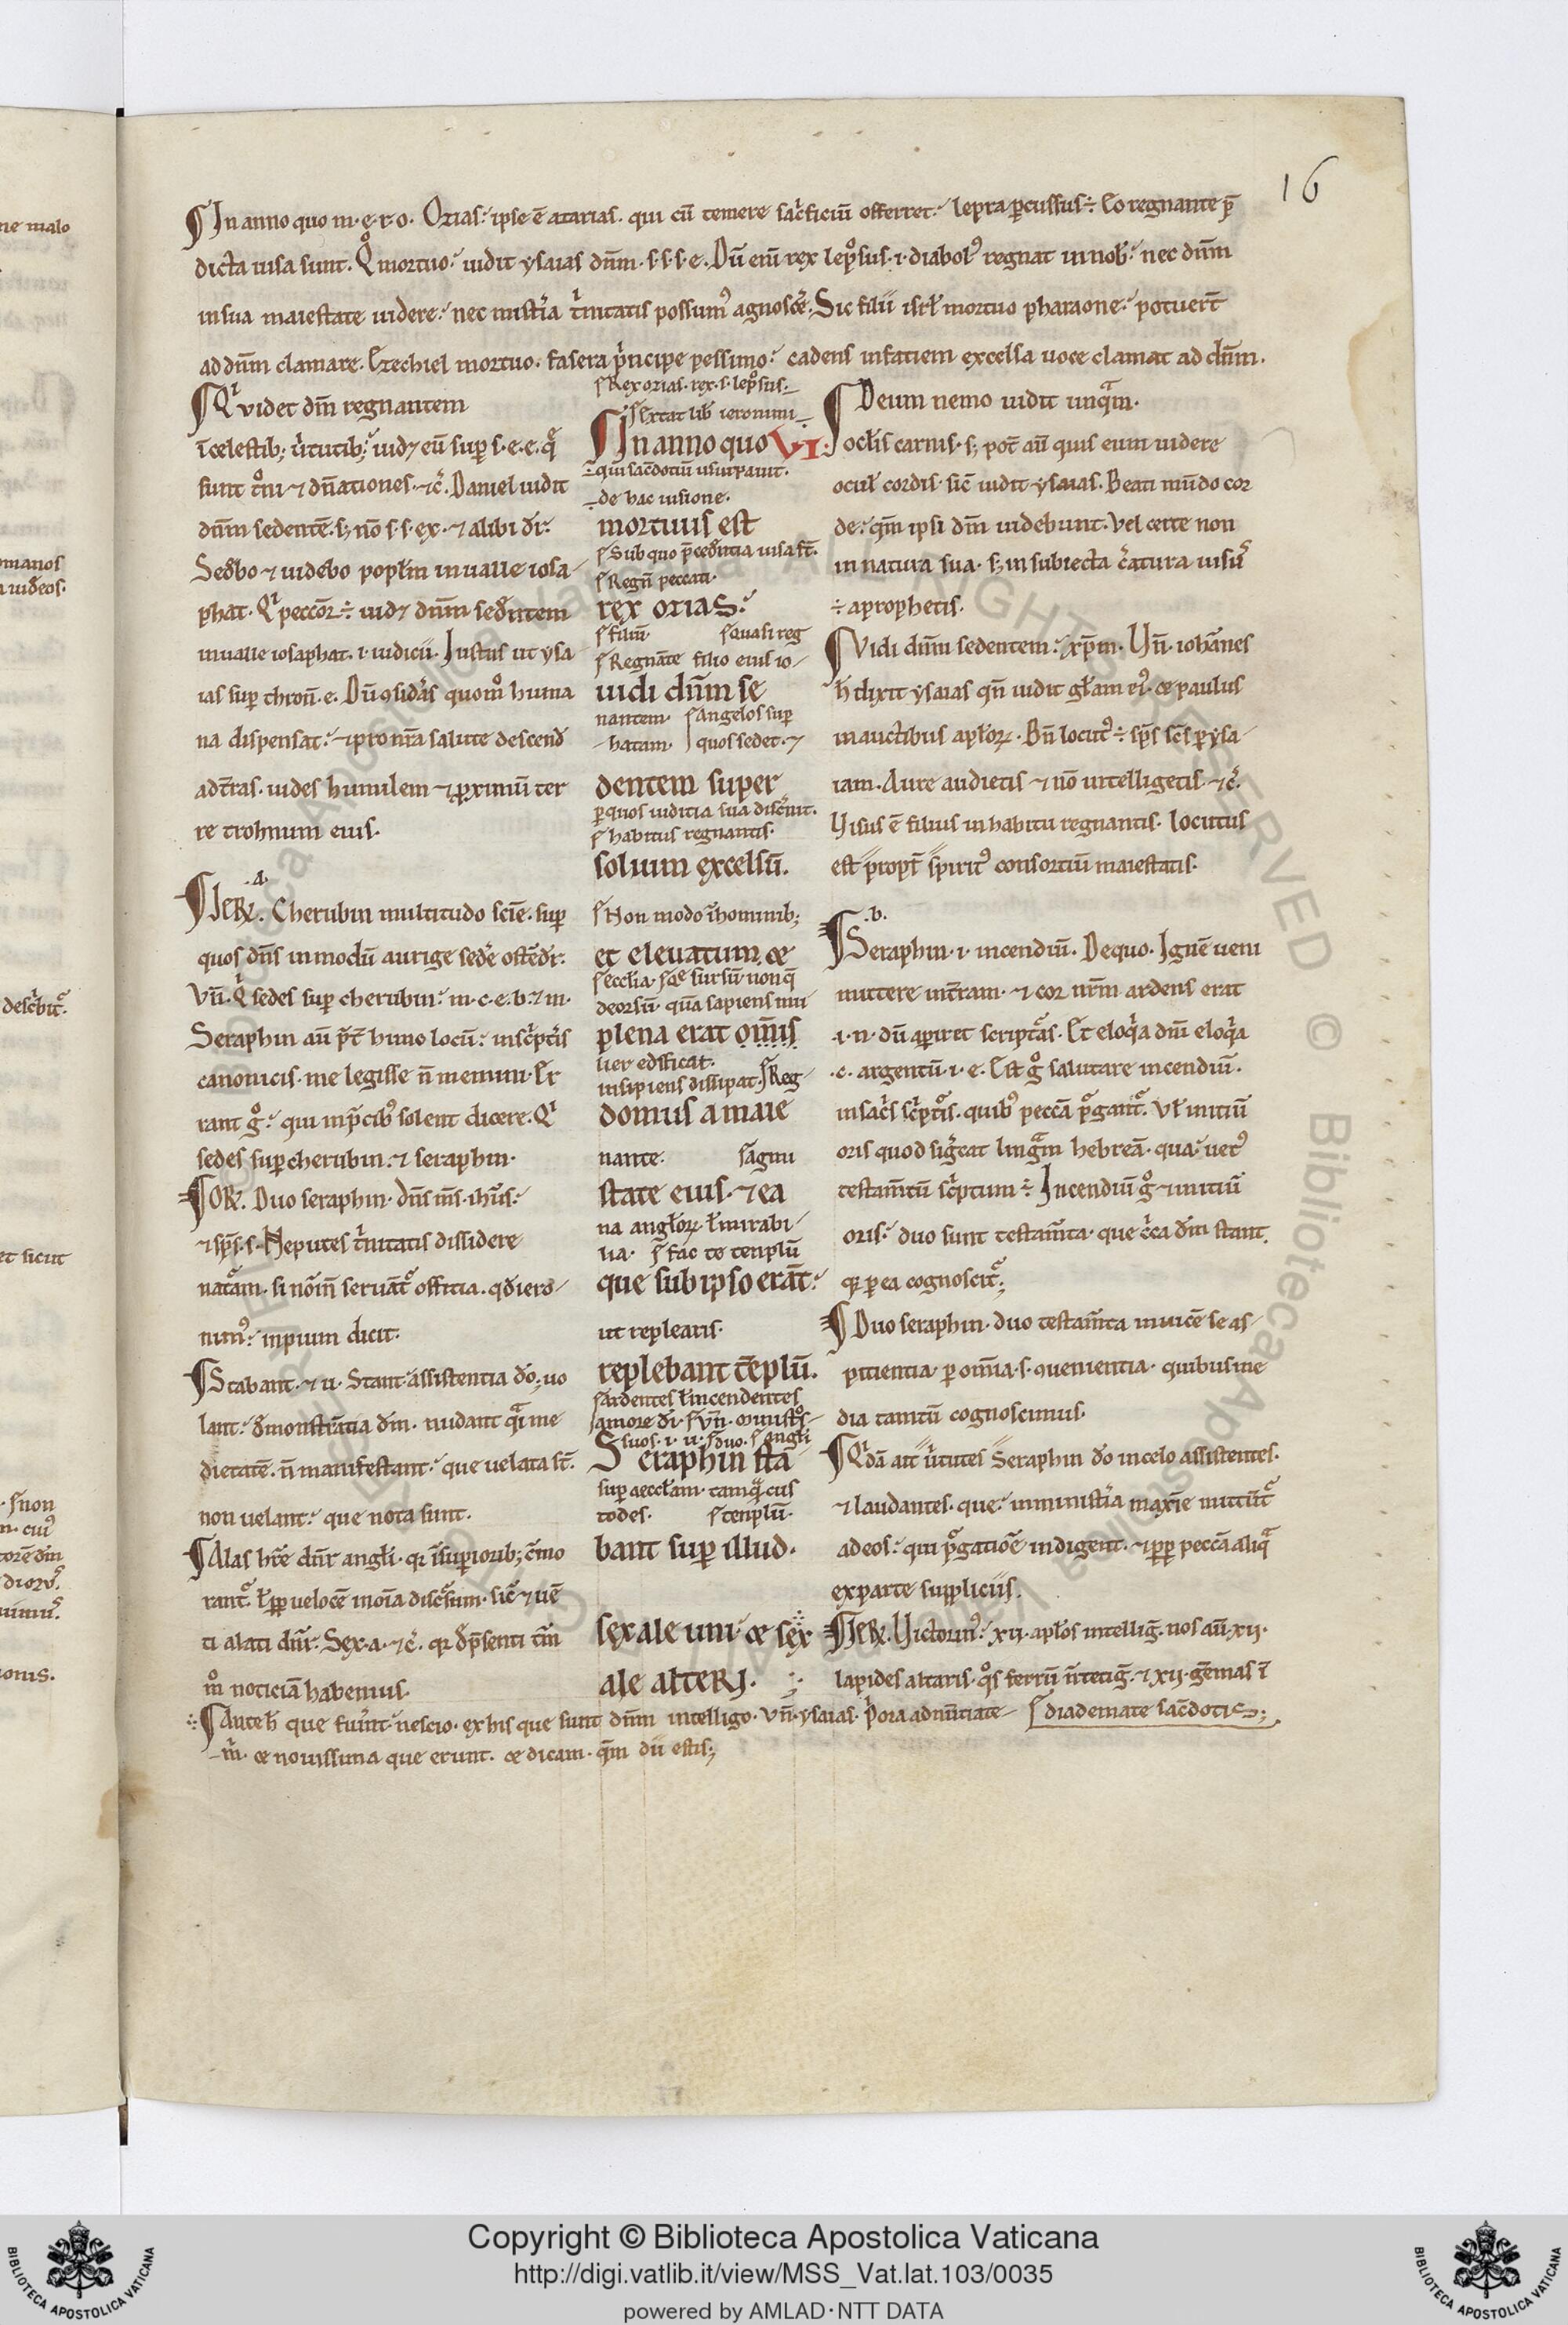 16
In anno quo m·e·r·o· Ozias: ipse ē azarias. qui cū temere sac̄ficiū offerret: lepra ꝑcussus ÷ Eo regnante p̄
dicta uisa sunt. Qͦ mortuo: uidit ysaias dn̄m·s·s·s·e· Dū eni͂ rex lepͦsus·i·diabolꝰ regnat in nob̄: nec dn̄m
in sua maiestate uidere: nec mist̄ia tͥnitatis possumꝰ agnosce᷒. Sic filii isrł mortuo pharaone: potuer̄t
ad dn̄m clamare. Ezechiel mortuo. fasera pͥncipe pessimo: cadens in fatiem excelsa uoce clamat ad dn̄m.
Qͥ videt dn̄m regnantem
ī celestib; uͥtutib; uidꝫ eū suꝑ s·e·e·qͣ
sunt tͦni ⁊ dn̄ationes·⁊c̄. Daniel uidit
dn̄m sedentē·s; nō s·s·ex·⁊ alibi dr̄:
Sedb̄o ⁊ uidebo popłm in ualle iosa
phat. Qͥ peccōr ÷ uidꝫ dn̄m sed̄ntem
in ualle iosaphat·i·iudicii. Iustus ut ysa
ias suꝑ thron̄·e· Dū ꝯsid̄as quomͦ huma
na dispensat: ⁊ pro nr̄a salute descend̄
ad t̄ras. uides humilem ⁊ ꝓximū ter
re trohnum eius.
·a·
IeR̄. Cherubin multitudo sciē. suꝑ
quos dn̄s in modū aurige sed̄e ostēdr̄:
Vn̄·Qͥ sedes suꝑ cherubin: m·c·e·b·⁊ in·
Seraphin aū p̄t̄ hunc locū: in sc̄ptͥis
canonicis·me legisse n̄ memini·Er
rant gͦ: qui in p̄cibꝰ solent dicere·Qͥ
sedes suꝑ cherubin·⁊ seraphin·
OR̄. Duo seraphin·dn̄s nr̄s·ihūs:
⁊ sp̄s·s· Ne putes tͥnitatis dissidere
natͣam·si nōin̄ seruāt offitia·qd̄ iero
nimꝰ: inpium dicit·
Stabant·⁊ u· Stant assistentia dō; uo
lant: d̄monstrātia dm̄· nudant qͣ me
dietatē·n̄ manifestant: que uelata st̄.
non uelant: que nota sunt.
Alas hr̄e dn̄r angłi·qꝛ ī suꝑiorib; cōmo
rant᷒·ł ꝓꝑ uelocē in oīa discᷤsum·sic̄ ⁊ uē
ti alati dn̄r· Sex·a·⁊c̄· qꝛ d̄ p̄senti tm̄
mͦ noticiā habemus
Rex ozias·rex·s·lepͦsus·
Sextat lib̄ ieronimi
In anno quo VI
÷ qui sac̄dotiū usurpauit.
de hac uisione·
mortuus est
Sub quo p̄ced̄ntia uisa st̄.
Regn̄ peccati·
rex ozias:
filiū quasi reg
Regnāte filio eius io
uidi dn̄m se
nantem· angelos suꝑ
hatam· quos sedet·⁊
dentem super
ꝑ quos iuditia sua discͥnit.
habitus regnantis·
solium excelsū.
Non modo ī hominib;
et eleuatum, &
eccłia·scͤ sursū non q̄
deorsū· qm̄ sapiens mu
plena erat om̄is
lier edificat.
insipiens dissipat·Reg
domus a maie
nante· magni
state eius·⁊ ea
na angłoꝝ· ł mirabi
lia· fac te tenplū
que sub ipso erāt:
ut replearis·
replebant tēplū.
ardentes ł incendentes
amore di͂· Vn̄·ministͦs
suos·i·ii· duo· angłi
Seraphin sta
suꝑ aecctam· tamqͣ cus
todes· tenplū·
bant suꝑ illud.
sex ale uni· & sex
ale alteRI.
Deum nemo uidit unqͣm·
ocłis carnis·s; pot̄ aū quis eum uidere
oculꝰ cordis·sic̄ uidit ysaias. Beati mūdo cor
de: qm̄ ipsi dm̄ uidebunt· Vel certe non
in natura sua·s; in subiecta cͥatura uisuꝰ
÷ a prophetis·
Vidi dn̄m sedentem: xp̄m· Vn̄·iohānes
h̄ dixit ysaias qn̄ uidit głam eiꝰ· & paulus
in auctibus apłoꝝ· Bn̄ locutꝰ ÷ sp̄s sc̄s ꝑ ysa
iam· Aure audietis ⁊ nō intelligetis·⁊c̄·
Visus ē filius in habitu regnantis· locutus
est propt̄ spiritꝰ consortiū maiestatis·
·b·
Seraphin·i·incendiū· De quo· Ignē ueni
mittere in t̄ram·⁊ cor nr̄m ardens erat
·i·n·dū aꝑiret scriptͣas· Et eloqͥa dn̄i eloqͥa
·c·argentū·i·e· Est gͦ salutare incendiū·
in sacͥs scͥptͥs·quibꝰ peccā pͥgant᷒· Vł initiū
oris quod sigͥcat lingͣm hebreā·qua uetꝰ
testam̄tū scͥptum ÷ Incendiū gͦ ⁊ initiū
oris: duo sunt testam̄ta·que cͥca dm̄ stant
qꝛ ꝑ ea cognoscit᷒;
Duo seraphin·duo testam̄ta inuicē se as
pitientia·ꝑ omīa·s·ꝯuenientia· quibus me
dia tantū cognoscimus·
Qͥdā ait uͥtutes Seraphin dō in celo assistentes·
⁊ laudantes·que: in ministͥia maxīe mittūt᷒
ad eos: qui pͥgatiōe indigent·⁊ ꝓꝑ peccā aliqͣ
ex parte suppliciis·
IeR̄. Victorinꝰ: xii·apłos intellig̅·nos aū·xii·
lapides altaris·qͦs ferrū n̄ tetig̅·⁊ xii·gēmas ī
diademate sac̄dotis;
Anteh̄ que fuer̄nt nescio·ex his que sunt dn̄m intelligo· Vn̄·ysaias· pͥora adnūtiate
m̄· & nouissima que erunt· & dicam·qm̄ dii estis;
ne malo
omanos
a iudeos·
descͥbit᷒·
et sicut
non
cuiꝰ
onis·
Copyright © Biblioteca Apostolica Vaticana
http://digi.vatlib.it/view/MSS_Vat.lat.103/0035
powered by AMLAD·NTT DATA
BIBLIOTECA APOSTOLICA VATICANA
BIBLIOTECA APOSTOLICA VATICANA